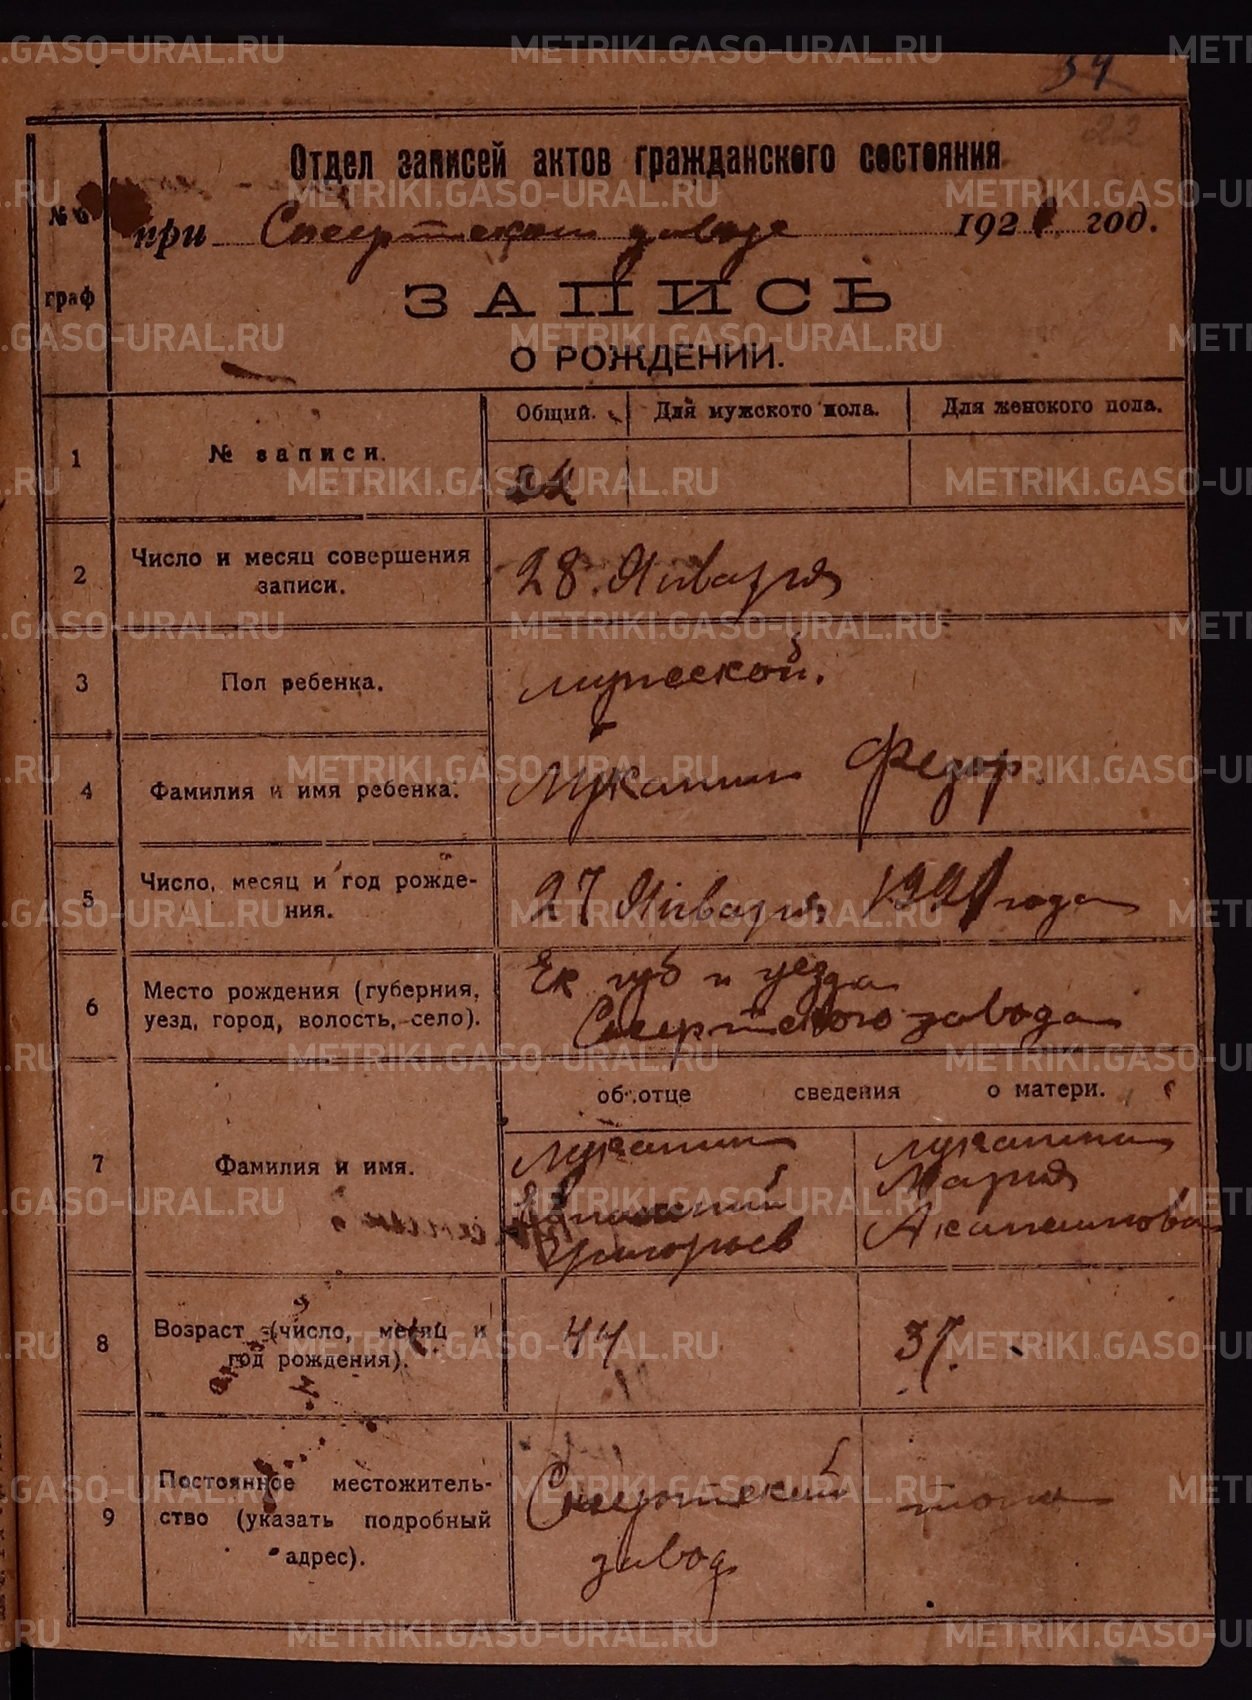 METRIKI.GASO-URAL.RU
34
22
Отдел записей актов гражданского состояния
№ №
граф
при Сысертском заводе 1921 год.
ЗАПИСЬ
О РОЖДЕНИИ.
Общий. Для мужского пола. Для женского пола.
1 № записи.
2 Число и месяц совершения
записи.
28. Января
3 Пол ребенка. мужской.
4 Фамилия и имя ребенка. Луканин Федор.
5 Число, месяц и год рожде-
ния.
27 Января 1921 года
6 Место рождения (губерния,
уезд, город, волость, село).
Ек губ и уезда
Сысертского завода
об отце сведения о матери.
7 Фамилия и имя.
Луканин
Григорьев
Луканина
Мария
8 Возраст (число, месяц и
год рождения).
44 37.
9 Постоянное местожитель-
ство (указать подробный
адрес).
Сысертский
завод
тоже